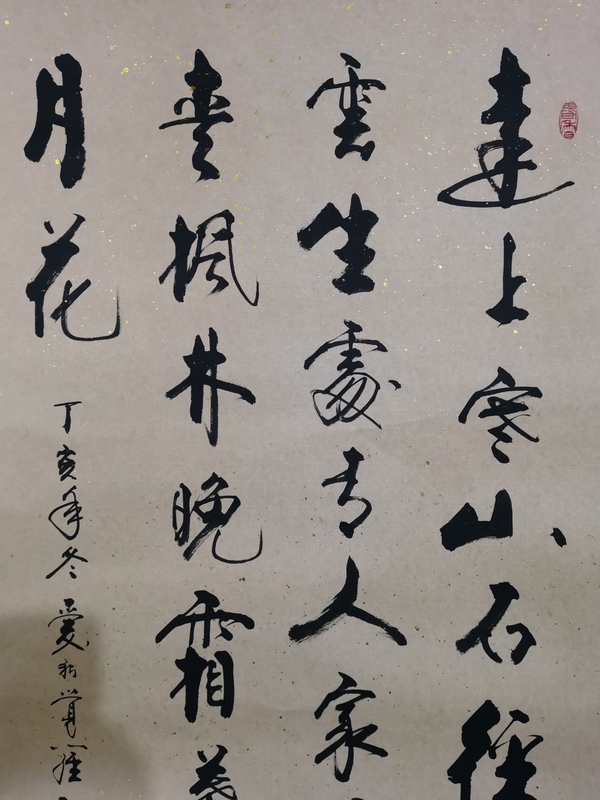 遠上寒山石徑
雲生處有人家
愛楓林晚霜葉
月花
丁亥年冬愛新覺羅